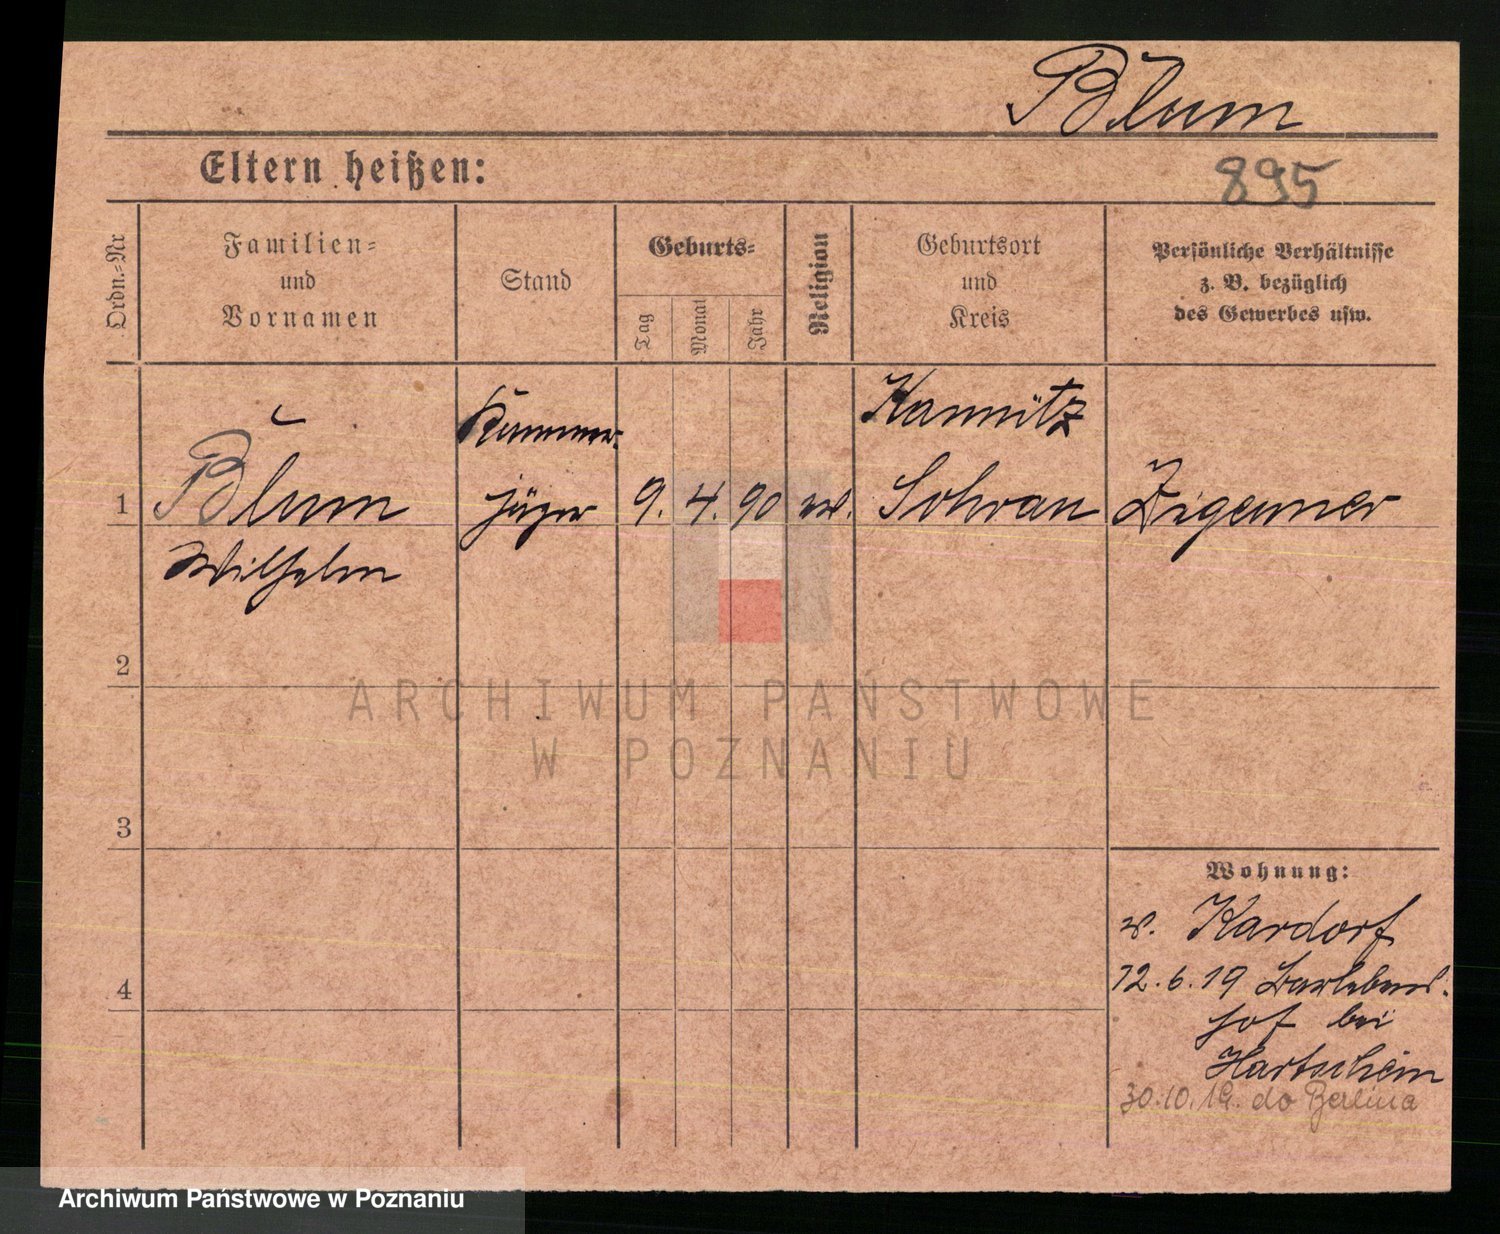 Blum
Eltern heißen:
895
Ordn.=Nr
Familien=
und
Vornamen
Stand
Geburts=
Tag
Monat
Jahr
Religion
Geburtsort
und
Kreis
Persönliche Verhältnisse
z. B. bezüglich
des Gewerbes usw.
1
Blum
Wilhelm
Kammer-
jäger
9. 4. 90
Kannitz
Sohrau
Zigeuner
2
3
4
Wohnung:
v. Kardorf
12.6.19
hof bei
30.10.19. do Berlina
ARCHIWUM PAŃSTWOWE
W POZNANIU
Archiwum Państwowe w Poznaniu